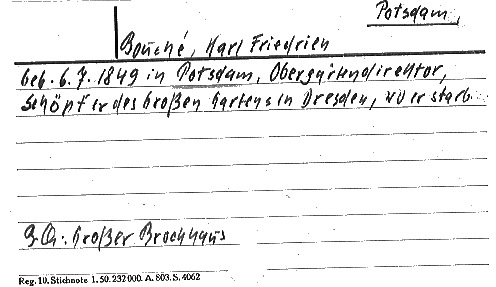 Potsdam,
Bouché, Karl Friedrich
geb. 6. 7. 1849 in Potsdam, Obergartendirektor,
Schöpfer des Großen Gartens in Dresden, wo er starb.
B.Q.: Großer Brockhaus
Reg. 10. Stichnote 1. 50. 232000. A. 803. S. 4062